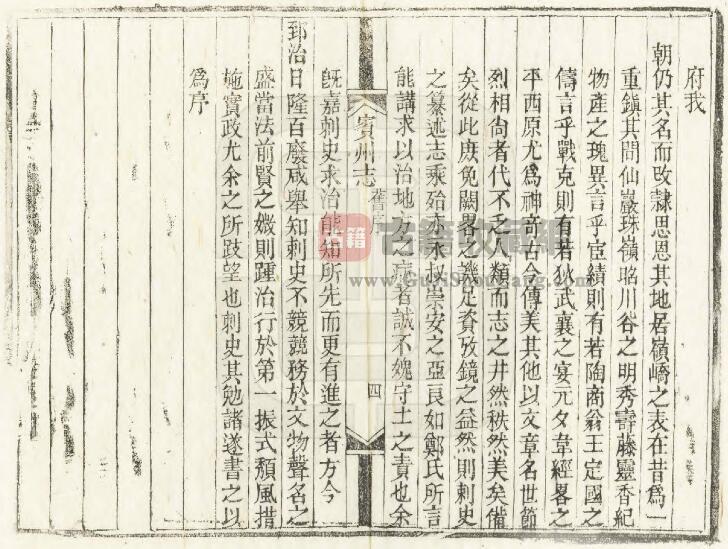 府我
朝仍其名而改隸思恩其地居嶺嶠之表在昔爲一
重鎮其間仙巖珠嶺昭川谷之明秀壽藤靈香紀
物產之瑰異言乎宦績則有若陶商翁王定國之
儔言乎戰克則有若狄武襄之宴元夕韋經畧之
平西原尤爲神奇古今傳美其他以文章名世節
烈相尙者代不乏人類而志之井然秩然美矣備
矣從此庶免闕畧之譏足資攷鏡之益然則刺史
之纂述志乘殆亦永叔崇安之亞良如鄭氏所言
能講求以治地方之病者誠不媿守土之責也余
賓州志
舊序
四
旣嘉刺史求治能知所先而更有進之者方今
郅治日隆百廢咸舉知刺史不競競務於文物聲名之
盛當法前賢之媺則踵治行於第一振式頹風措
施實政尤余之所跂望也刺史其勉諸遂書之以
爲序
古籍收藏網
www.GujiShouCang.com